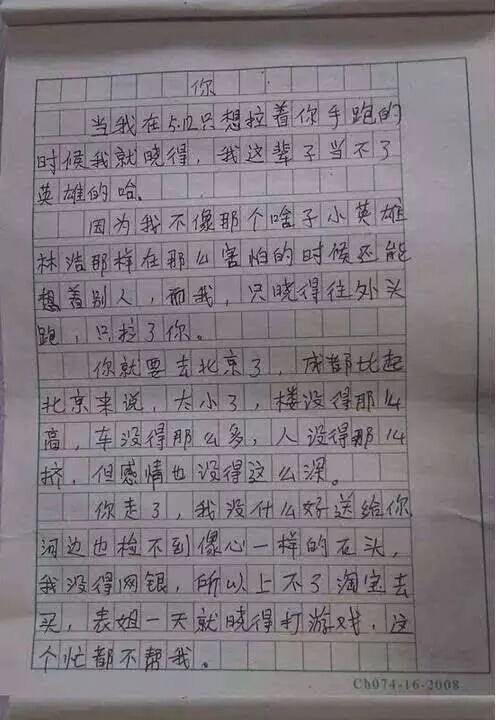 你
当我在5.12只想拉着你手跑的
时候我就晓得，我这辈子当不了
英雄的哈。
因为我不像那个啥子小英雄
林浩那样在那么害怕的时候还能
想着别人，而我，只晓得往外头
跑，只拉了你。
你就要去北京了，成都比起
北京来说，太小了，楼没得那么
高，车没得那么多，人没得那么
挤，但感情也没得这么深。
你走了，我没什么好送给你
河边也检不到像心一样的石头，
我没得网银，所以上不了淘宝去
买，表姐一天就晓得打游戏，这
个忙都不帮我。
Cb074-16-2008